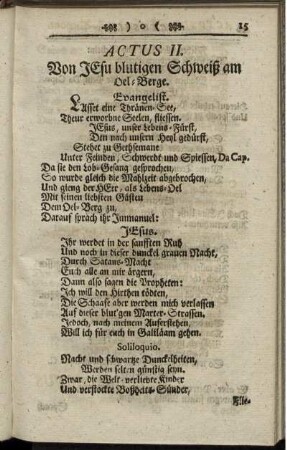 ) o (
15
ACTUS II.
Von JEsu blutigen Schweiß am
Oel-Berge.
Evangelist.
Lasset eine Thränen-See,
Theur erworbne Seelen, fliessen.
JEsus, unser Lebens-Fürst,
Den nach unsern Heyl gedürst,
Stehet zu Gethsemane
Unter Feinden, Schwerdt und Spiessen, Da Cap.
Da sie den Lob-Gesang gesprochen,
So wurde gleich die Mahlzeit abgebrochen,
Und gieng der HErr, als Lebens-Oel
Mit seinen liebsten Gästen
Dem Oel-Berg zu,
Darauf sprach ihr Immanuel:
JEsus.
Ihr werdet in der sanfften Ruh
Und noch in dieser dunckel grauen Nacht,
Durch Satans-Macht
Euch alle an mir ärgern,
Dann also sagen die Propheten:
Ich will den Hirthen tödten,
Die Schaafe aber werden mich verlassen
Auf dieser blut'gen Marter-Strassen.
Jedoch, nach meinem Auferstehen,
Will ich für euch in Galiläam gehen.
Soliloquio.
Nacht und schwartze Dunckelheiten,
Werden selten günstig seyn.
Zwar, die Welt-verliebte Kinder
Und verstockte Boßheits-Sünder,